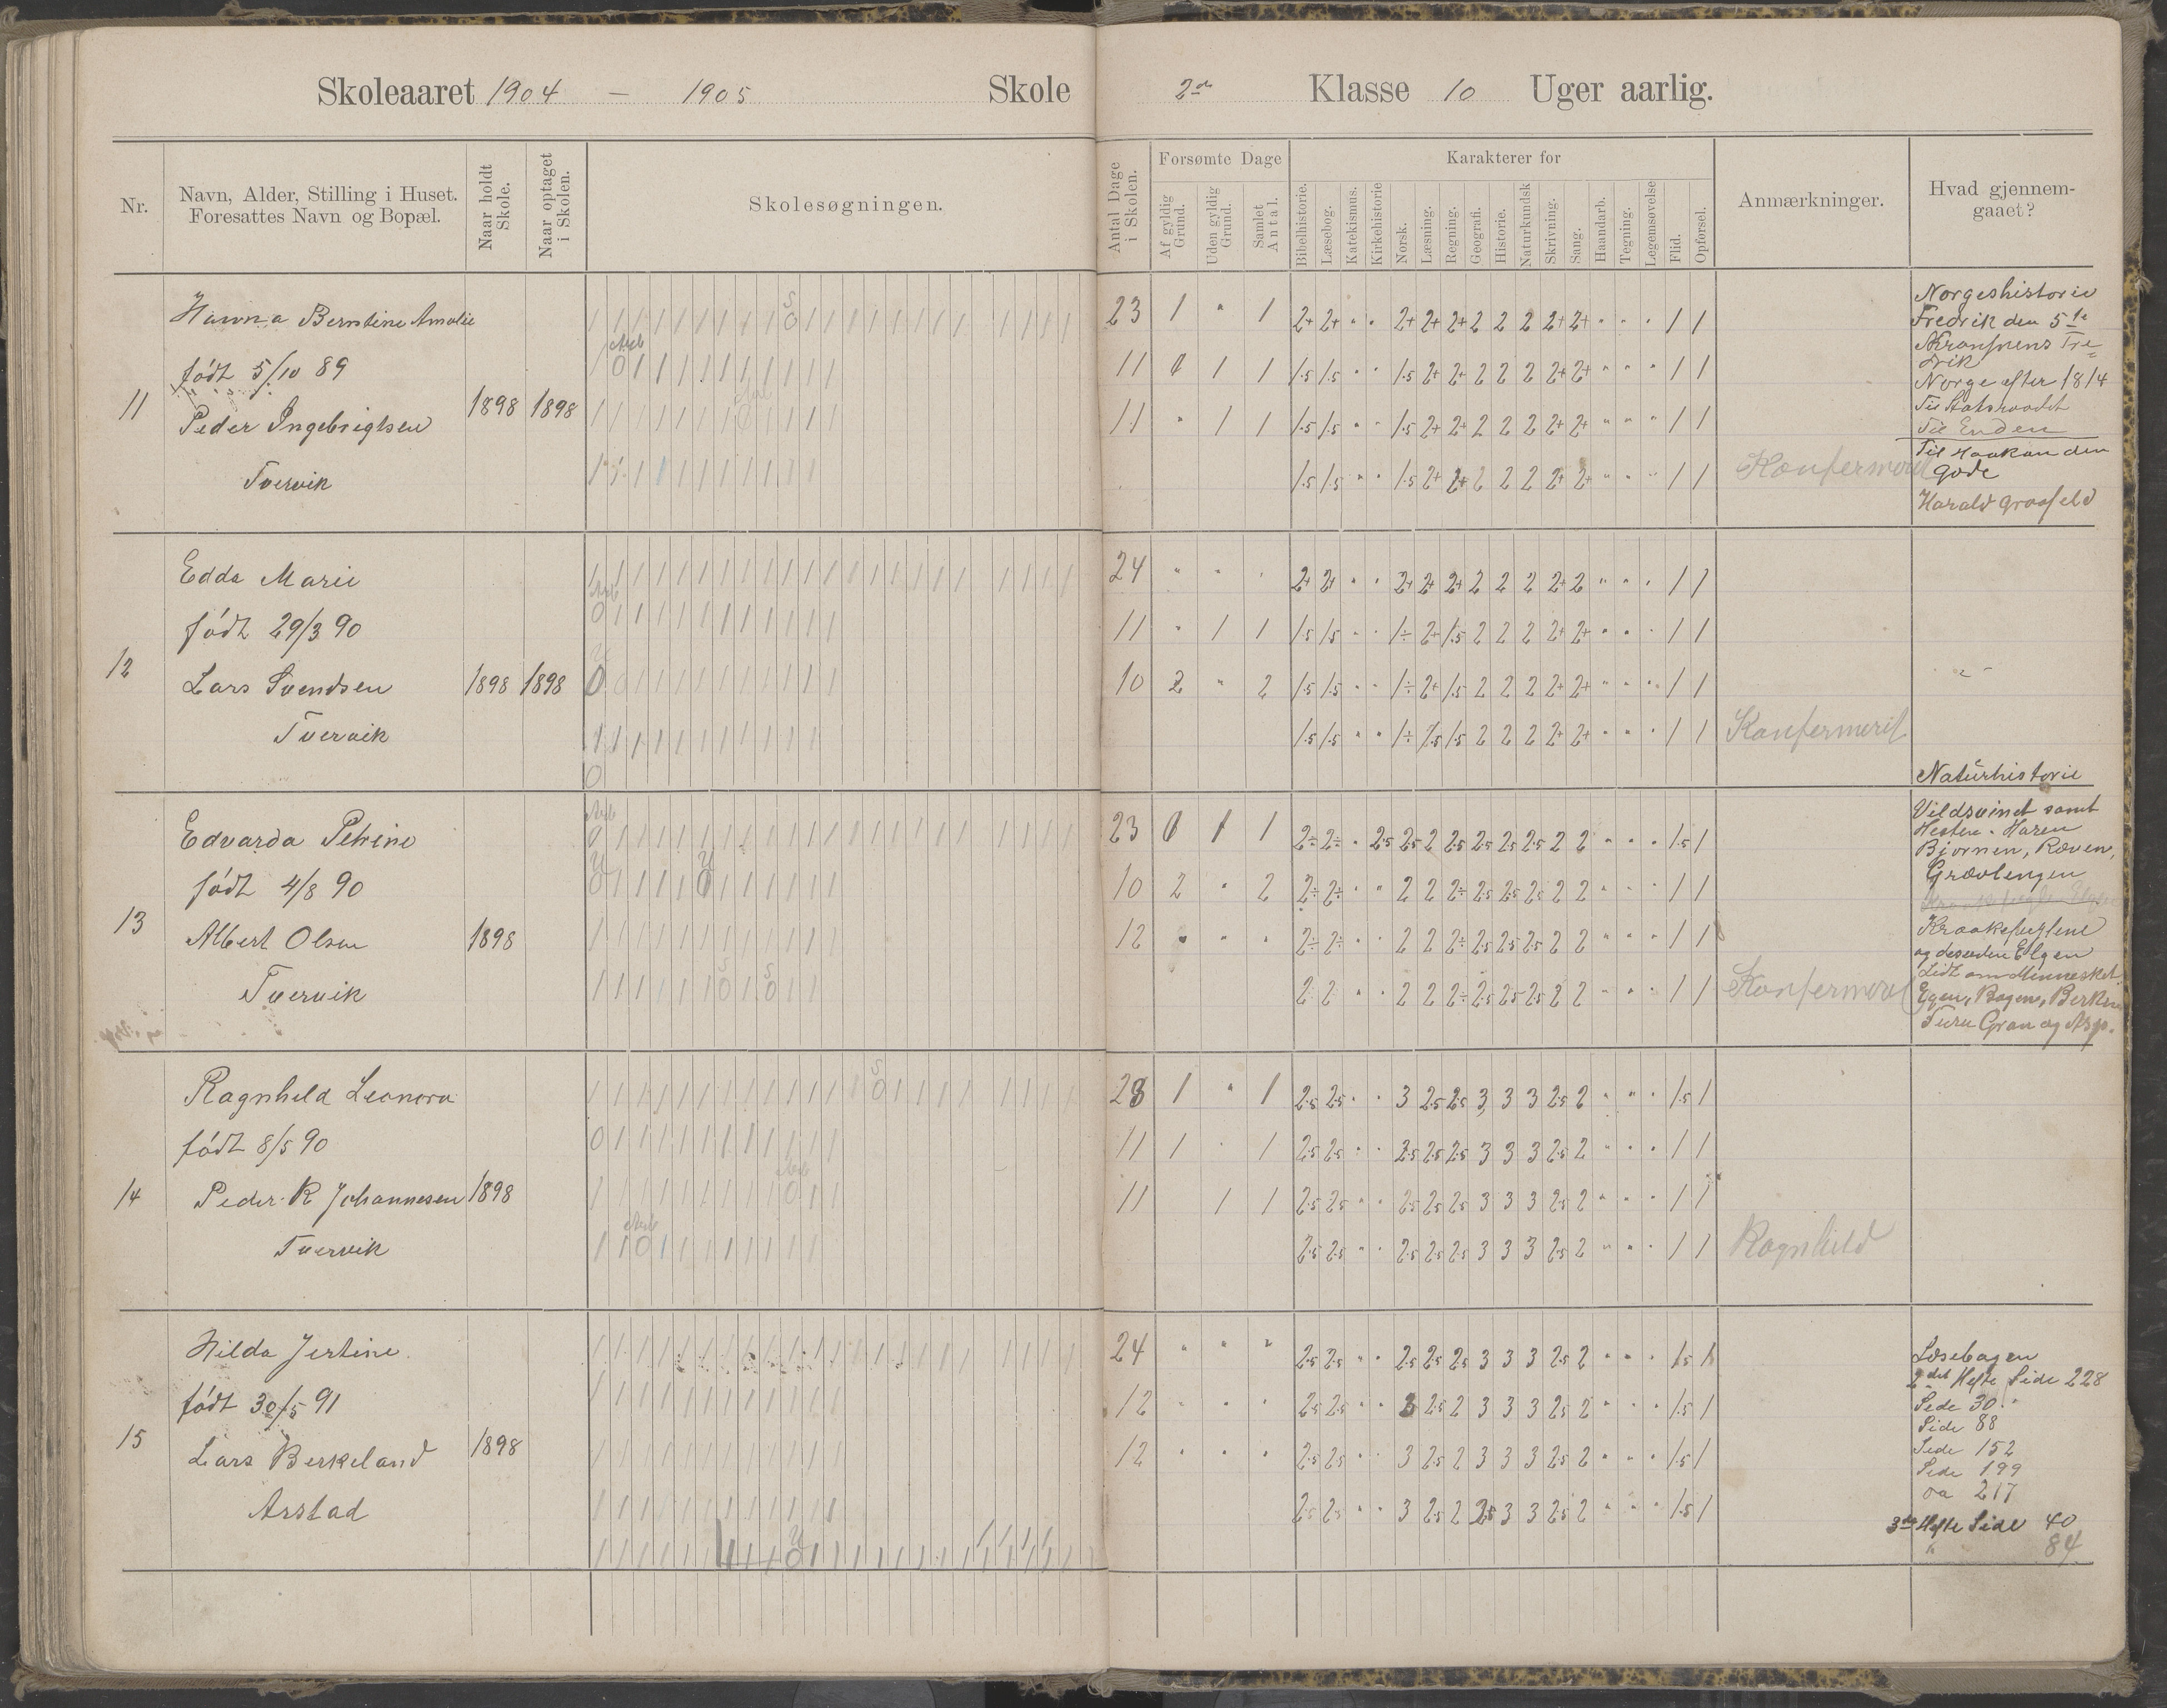 Skoleaaret 1904 — 1905 Skole 2den Klasse 10 Uger aarlig.
Nr.
Navn, Alder, Stilling i Huset.
Foresattes Navn og Bopæl.
Naar holdt
Skole.
Naar optaget
i Skolen.
Skolesøgningen.
Antal Dage
i Skolen.
Forsømte Dage
Af gyldig
Grund.
Uden gyldig
Grund.
Samlet
Antal.
Karakterer for
Bibelhistorie.
Læsebog.
Katekismus.
Kirkehistorie
Norsk.
Læsning.
Regning.
Geografi.
Historie.
Naturkundsk
Skrivning.
Sang.
Haandarb.
Tegning.
Legemsøvelse
Flid.
Opførsel.
Anmærkninger.
Hvad gjennem-
gaaet?
11
Hanna Berntine Amalie
født 5/10 89
Peder Ingebrigtsen
Tvervik
1898 1898
23 1 " 1 2+ 2+ " " 2+ 2+ 2+ 2 2 2 2+ 2+ " " " 1 1
11 1 1 1.5 1.5 " " 1.5 2+ 2+ 2 2 2 2+ 2+ " " " 1 1
11 " 1 1 1.5 1.5 " " 1.5 2+ 2+ 2 2 2 2+ 2+ " " " 1 1
1.5 1.5 " " 1.5 2+ 2+ 2 2 2 2+ 2+ " " " 1 1
Norgeshistorie
Fredrik den 5te
Kronprens Fre-
drik
Norge efter 1814
Til Statsraadet
Til Enden
Til Haakon den
gode
Harald Graafeld
12
Edda Marie
født 29/3 90
Lars Svendsen
Tvervik
1898 1898
24 " " " 2+ 2+ " " 2+ 2+ 2+ 2 2 2 2+ 2 " " " 1 1
11 " 1 1 1.5 1.5 " " 1÷ 2+ 1.5 2 2 2 2+ 2+ " " " 1 1
10 2 " 2 1.5 1.5 " " 1÷ 2+ 1.5 2 2 2 2+ 2+ " " " 1 1
1.5 1.5 " " 1÷ 1.5 1.5 2 2 2 2+ 2+ " " " 1 1
Konfermerit
Naturhistorie
13
Edvarda Petrine
født 4/8 90
Albert Olsen
Tvervik
1898
23 1 1 2÷ 2÷ " 2.5 2.5 2 2.5 2.5 2.5 2.5 2 2 " " " 1.5 1
10 2 " 2 2÷ 2÷ " " 2 2 2÷ 2.5 2.5 2.5 2 2 " " " 1 1
12 " " " 2÷ 2÷ " " 2 2 2÷ 2.5 2.5 2.5 2 2 " " " 1 1
2 2 " " 2 2 2÷ 2.5 2.5 2.5 2 2 " " " 1 1
Vildsvinet samt
Hesten. Haren
Bjørnen, Ræven,
Grævlingen
Kraakefuglene
og desuden Elgen
Lidt om Mennesket
Egen, Bøgene, Berken
Furu Gran og Asp.
14
Ragnhild Leonora
født 8/5 90
Peder R Johannesen
Tvervik
1898
23 1 " 1 2.5 2.5 " " 3 2.5 2.5 3 3 3 2.5 2 " " " 1.5 1
11 1 " 1 2.5 2.5 " " 2.5 2.5 2.5 3 3 3 2.5 2 " " " 1 1
11 1 1 2.5 2.5 " " 2.5 2.5 2.5 3 3 3 2.5 2 " " " 1 1
2.5 2.5 " " 2.5 2.5 2.5 3 3 3 2.5 2 " " " 1 1
Ragnhild
15
Hilda Jertine
født 30/5 91
Lars Berkeland
Arstad
1898
24 " " " 2.5 2.5 " " 2.5 2.5 2.5 3 3 3 2.5 2 " " " 1.5 1
12 " " " 2.5 2.5 " " 3 2.5 2 3 3 3 2.5 2 " " " 1.5 1
12 " " " 2.5 2.5 " " 3 2.5 2 3 3 3 2.5 2 " " " 1.5 1
2.5 2.5 " " 3 2.5 2 2.5 3 3 2.5 2 " " " 1.5 1
Læsebogen
2det Hefte Side 228
Side 30
Side 88
Side 152
Side 199
217
3die Hefte Side 40
" 84